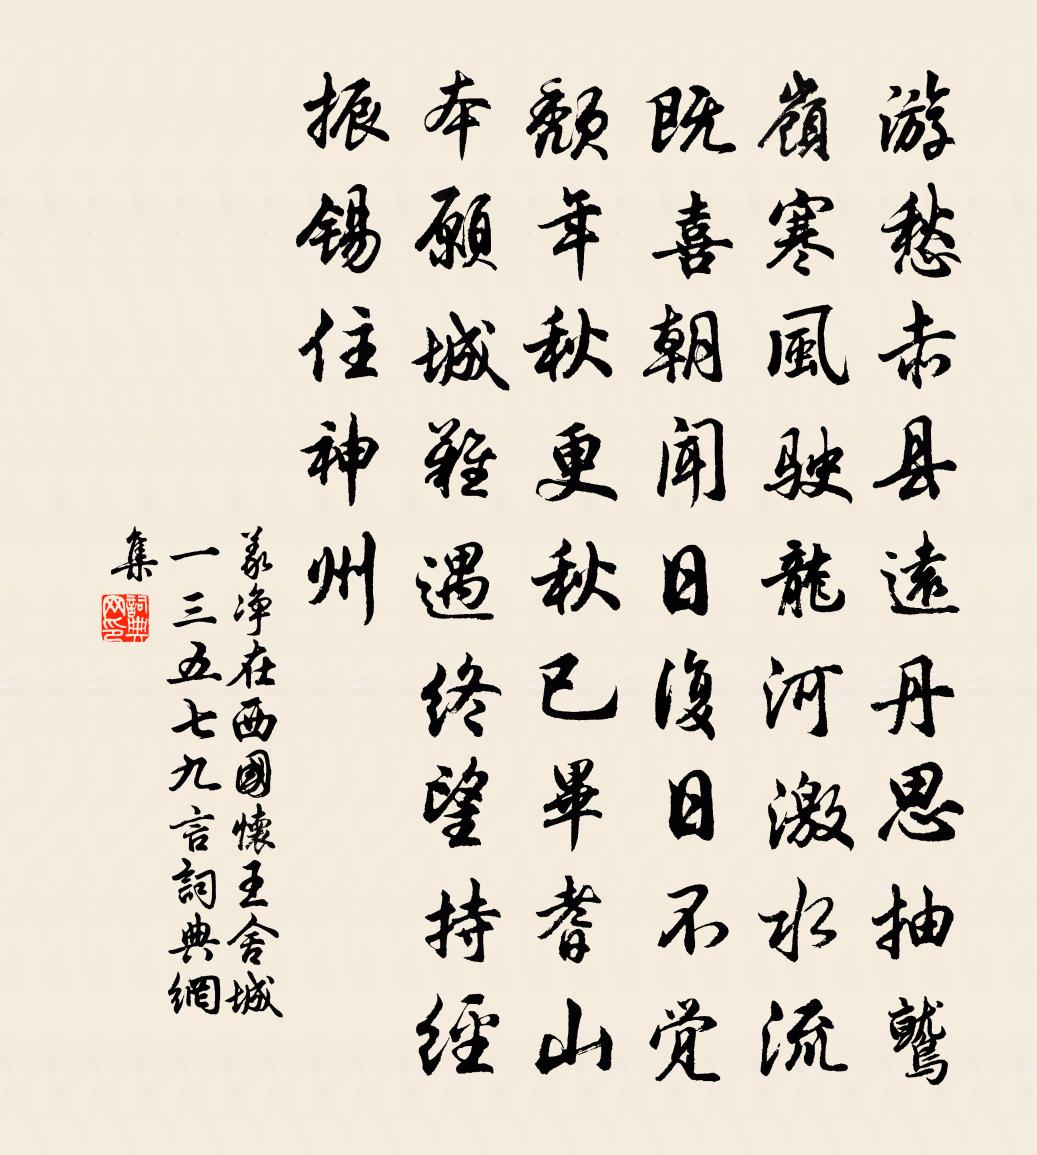 游愁赤县遠丹思抽鷲
嶺寒風駛龍河激水流
既喜朝聞日復日不觉
頹年秋更秋已畢耆山
本願城難遇終望持經
振錫住神州
義净在西國懷王舍城
一三五七九言詞典網
集
詞典网印